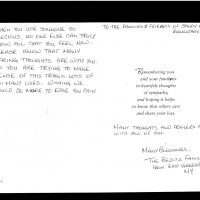 WHEN YOU LOSE SOMEONE SO
PRECIOUS, NO ONE ELSE CAN TRULY
KNOW ALL THAT YOU FEEL NOW.
PLEASE KNOW THAT MANY
CARING THOUGHTS ARE WITH YOU.
AS YOU ARE TRYING TO MAKE
SENSE OF THIS TRAGIC LOSS OF
SO MANY LIVES. WISHING WE
COULD DO MORE TO EASE YOUR PAIN.
TO THE FAMILIES & FRIENDS OF SANDY
ELEMENTARY
Remembering you
and your families
in heartfelt thoughts
of sympathy,
and hoping it helps
to know that others care
and share your loss.
MANY THOUGHTS AND PRAYERS A
WITH ALL OF YOU.
MANY BLESSINGS,
THE
NY